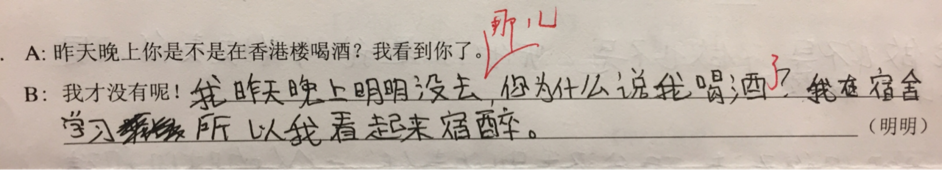 那儿
A: 昨天晚上你是不是在香港楼喝酒？我看到你了。
B: 我才没有呢！我昨天晚上明明没去，你为什么说我喝酒了？我在宿舍
学习所以我看起来宿醉。（明明）